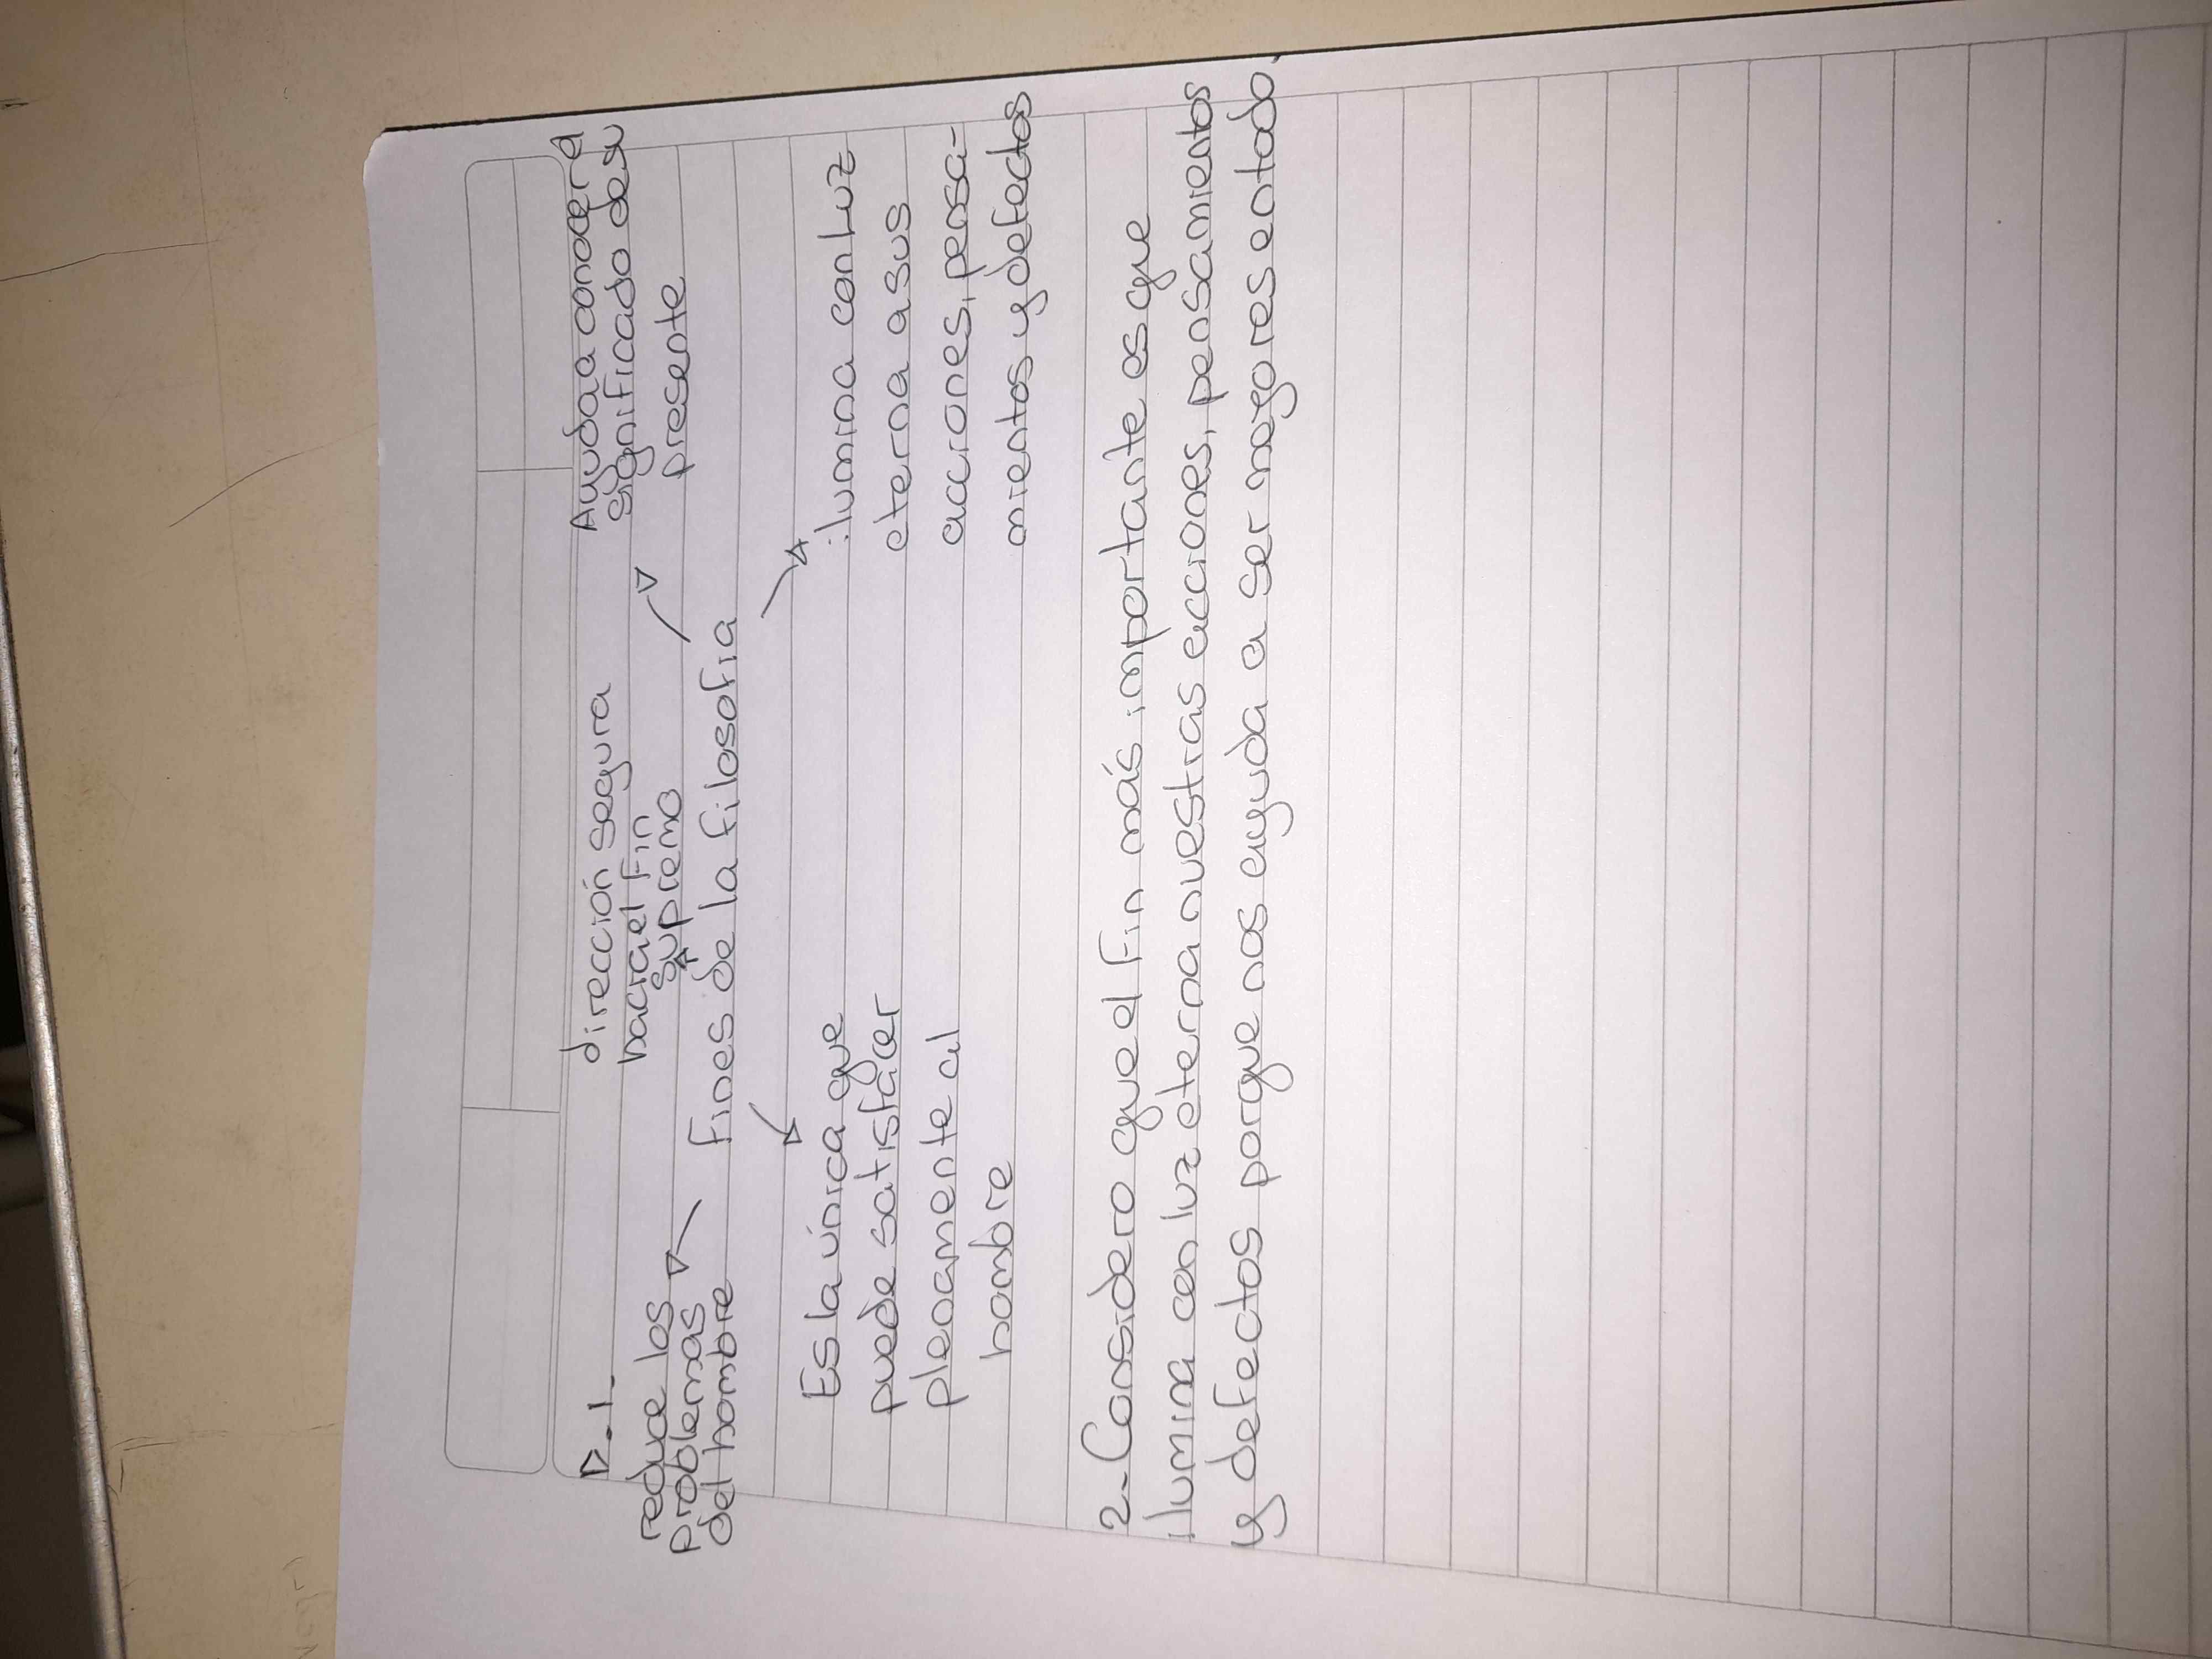 D.1.
reduce los
problemas
del hombre
dirección segura
hacia el fin
supremo
Ayuda a conocer el
significado de su
presente
Fines de la filosofía
Es la única que
puede satisfacer
plenamente al
hombre
ilumina con luz
eterna a sus
acciones, pensa-
mientos y defectos
2-Considero que el fin más importante es que
ilumina con luz eterna nuestras acciones, pensamientos
y defectos porque nos ayuda a ser mayores en todo.